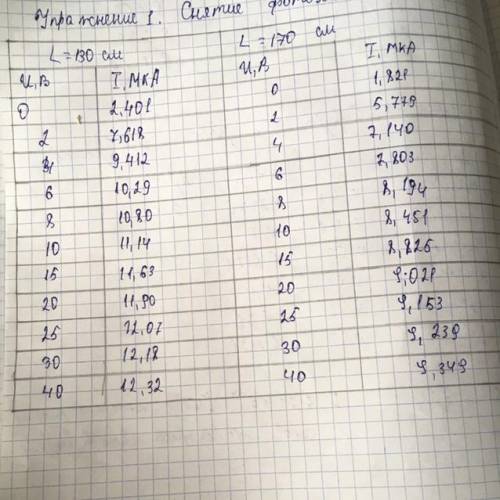 Упражнение 1. Снятие
L = 130 см L = 170 см
U, В I, мкА U, В I, мкА
0 2,401 0 1,821
2 7,618 2 5,779
4 9,412 4 7,140
6 10,29 6 7,803
8 10,80 8 8,194
10 11,14 10 8,451
15 11,63 15 8,825
20 11,90 20 9,021
25 12,07 25 9,153
30 12,18 30 9,239
40 12,32 40 9,349